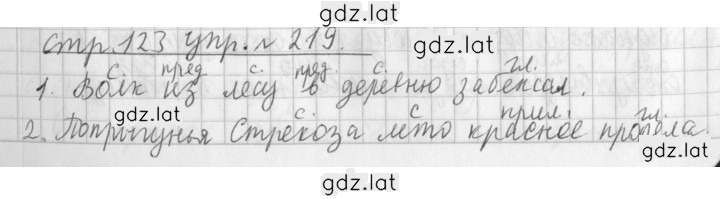 gdz.lat
стр. 123 упр. № 219.
gdz.lat
с. пред. с. пред. с. гл.
1. Волк из лесу в деревню забежал.
gdz.lat
с. с. прил. гл.
2. Попрыгунья Стрекоза лето красное пропела.
gdz.lat
gdz.lat